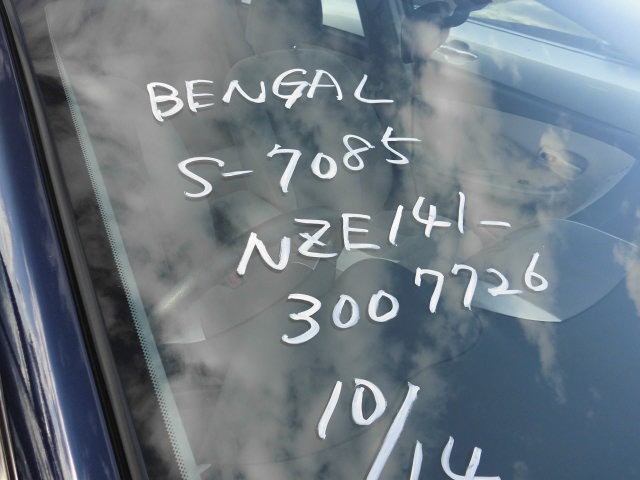 BENGAL
S-7085
NZE141-
3007726
10/14